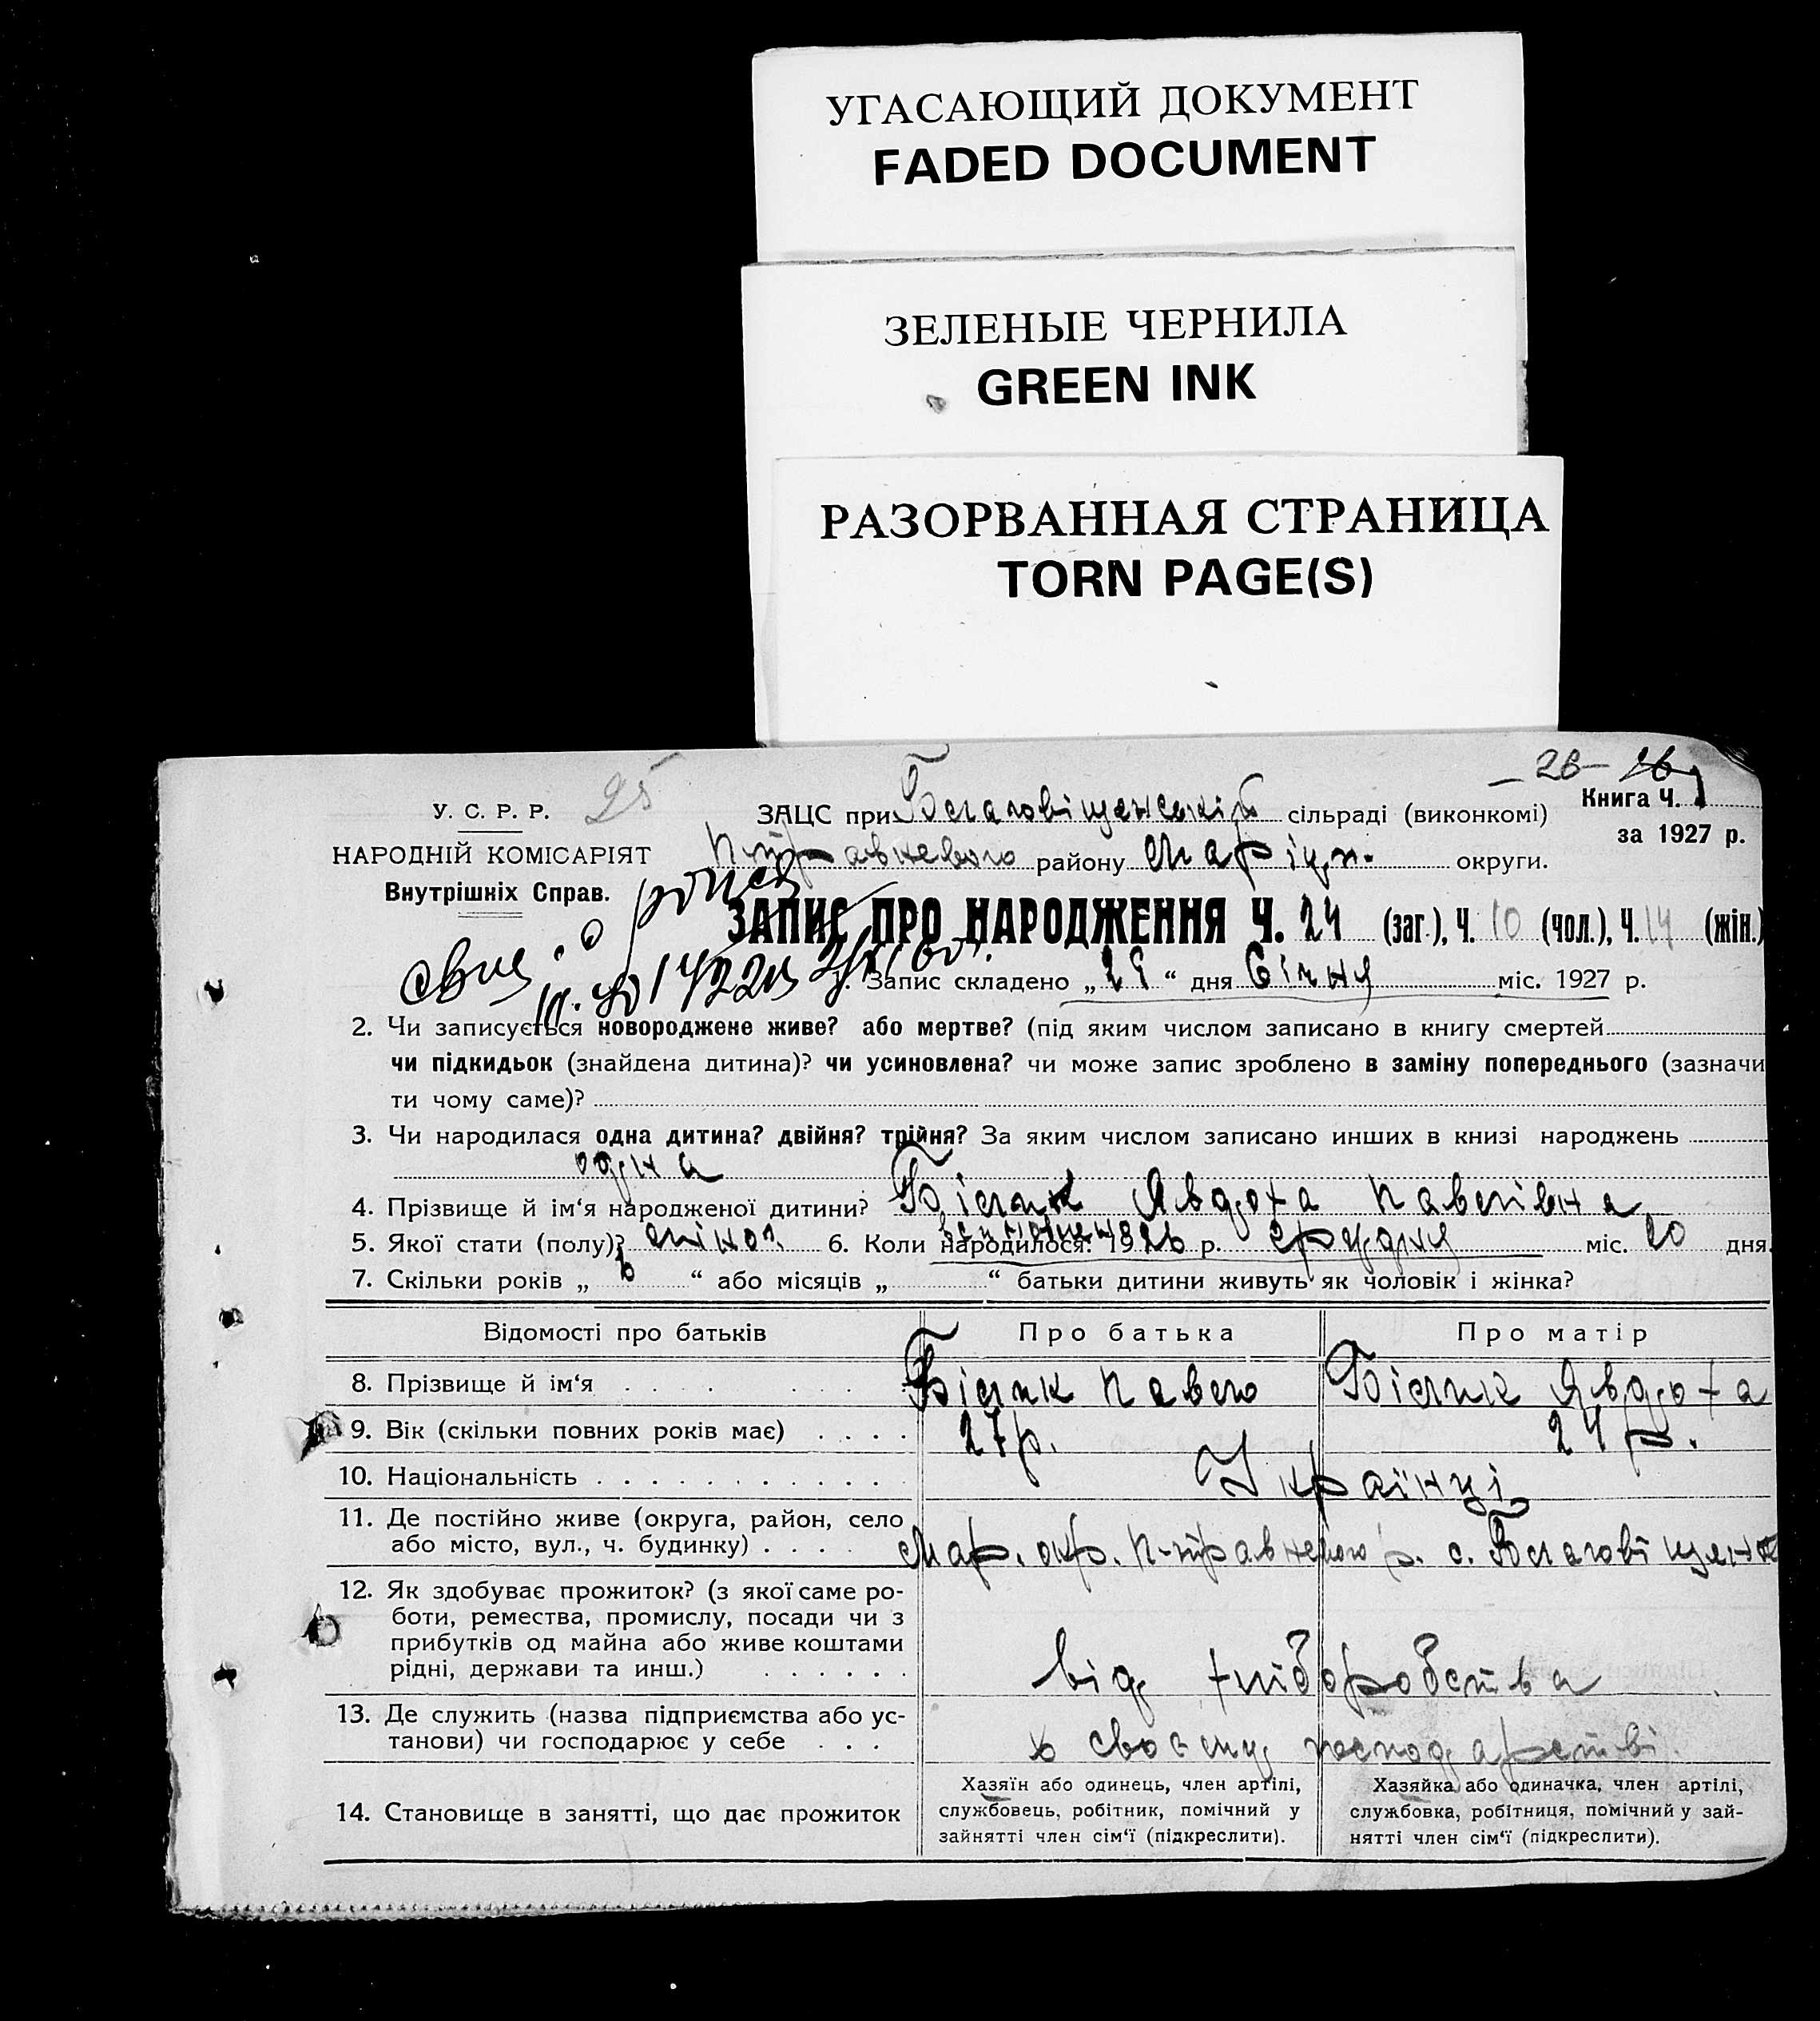 УГАСАЮЩИЙ ДОКУМЕНТ
FADED DOCUMENT
ЗЕЛЕНЫЕ ЧЕРНИЛА
GREEN INK
РАЗОРВАННАЯ СТРАНИЦА
TORN PAGE(S)
– 26 –
У. С. Р. Р.
25
ЗАЦС при Благовіщенській сільраді (виконкомі)
Книга Ч. 1
за 1927 р.
НАРОДНІЙ КОМІСАРІЯТ
району Маріуп. округи.
Внутрішніх Справ.
ЗАПИС ПРО НАРОДЖЕННЯ Ч. 24 (заг.), Ч. 10 (чол.), Ч. 14 (жін.)
1. Запис складено „ 29 “ дня Січня міс. 1927 р.
2. Чи записується новороджене живе? або мертве? (під яким числом записано в книгу смертей
чи підкидьок (знайдена дитина)? чи усиновлена? чи може запис зроблено в заміну попереднього (зазначи
ти чому саме)?
3. Чи народилася одна дитина? двійня? трійня? За яким числом записано инших в книзі народжень
одна
4. Прізвище й ім‘я народженої дитини? Білик Явдоха Павлівна
5. Якої стати (полу)? жіноч. 6. Коли народилося: 1926 р. грудня міс. 20 дня.
7. Скільки років „ 6 “ або місяців „ “ батьки дитини живуть як чоловік і жінка?
Відомості про батьків
Про батька
Про матір
8. Прізвище й ім‘я
Білик Павло
Білик Явдоха
9. Вік (скільки повних років має)
27 р.
24 р.
10. Національність
Українці
11. Де постійно живе (округа, район, село
або місто, вул., ч. будинку)
Мар. окр. р. с. Благовіщенка
12. Як здобуває прожиток? (з якої саме ро-
боти, ремества, промислу, посади чи з
прибутків од майна або живе коштами
рідні, держави та инш.)
від хліборобства
13. Де служить (назва підприємства або ус-
танови) чи господарює у себе
в своєму господарстві
14. Становище в занятті, що дає прожиток
Хазяїн або одинець, член артілі,
службовець, робітник, помічний у
зайнятті член сім‘ї (підкреслити).
Хазяйка або одиначка, член артілі,
службовка, робітниця, помічний у зай-
нятті член сім‘ї (підкреслити).